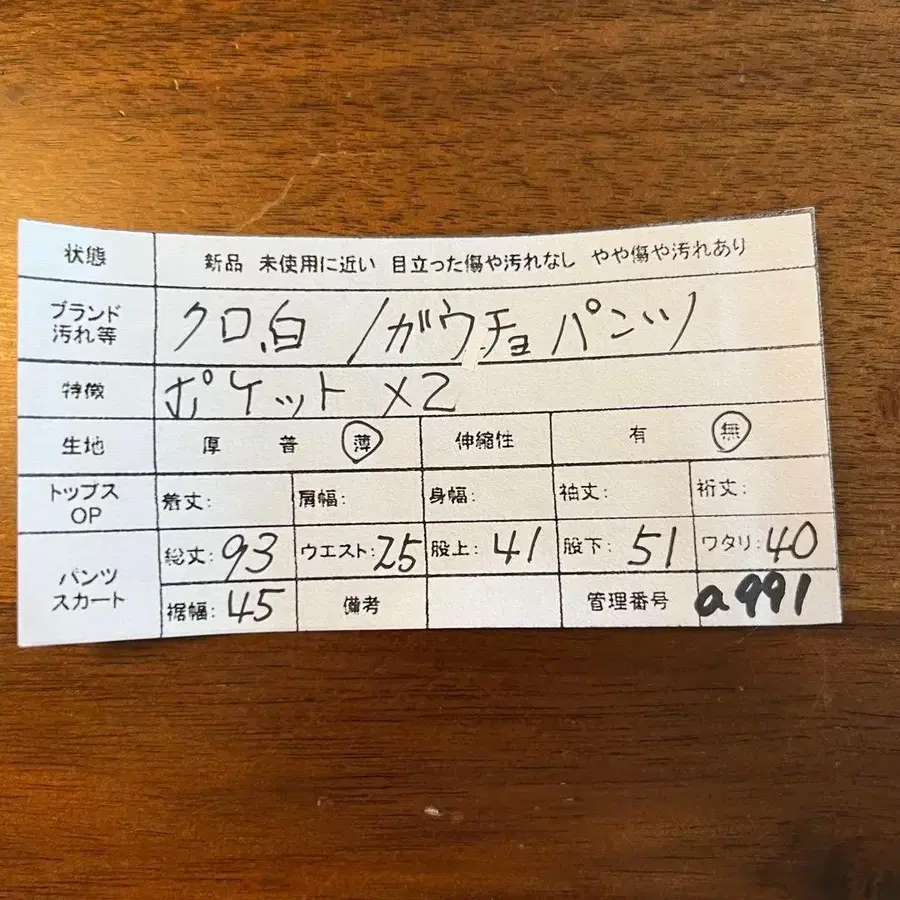 状態 新品 未使用に近い 目立った傷や汚れなし やや傷や汚れあり
ブランド
汚れ等
クロ、白 /ガウチョパンツ
特徴 ポケット ×2
生地 厚 普 薄 伸縮性 有 無
トップス
OP
着丈: 肩幅: 身幅: 袖丈: 裄丈:
パンツ
スカート
総丈:93 ウエスト:25 股上:41 股下:51 ワタリ:40
裾幅:45 備考 管理番号 a991